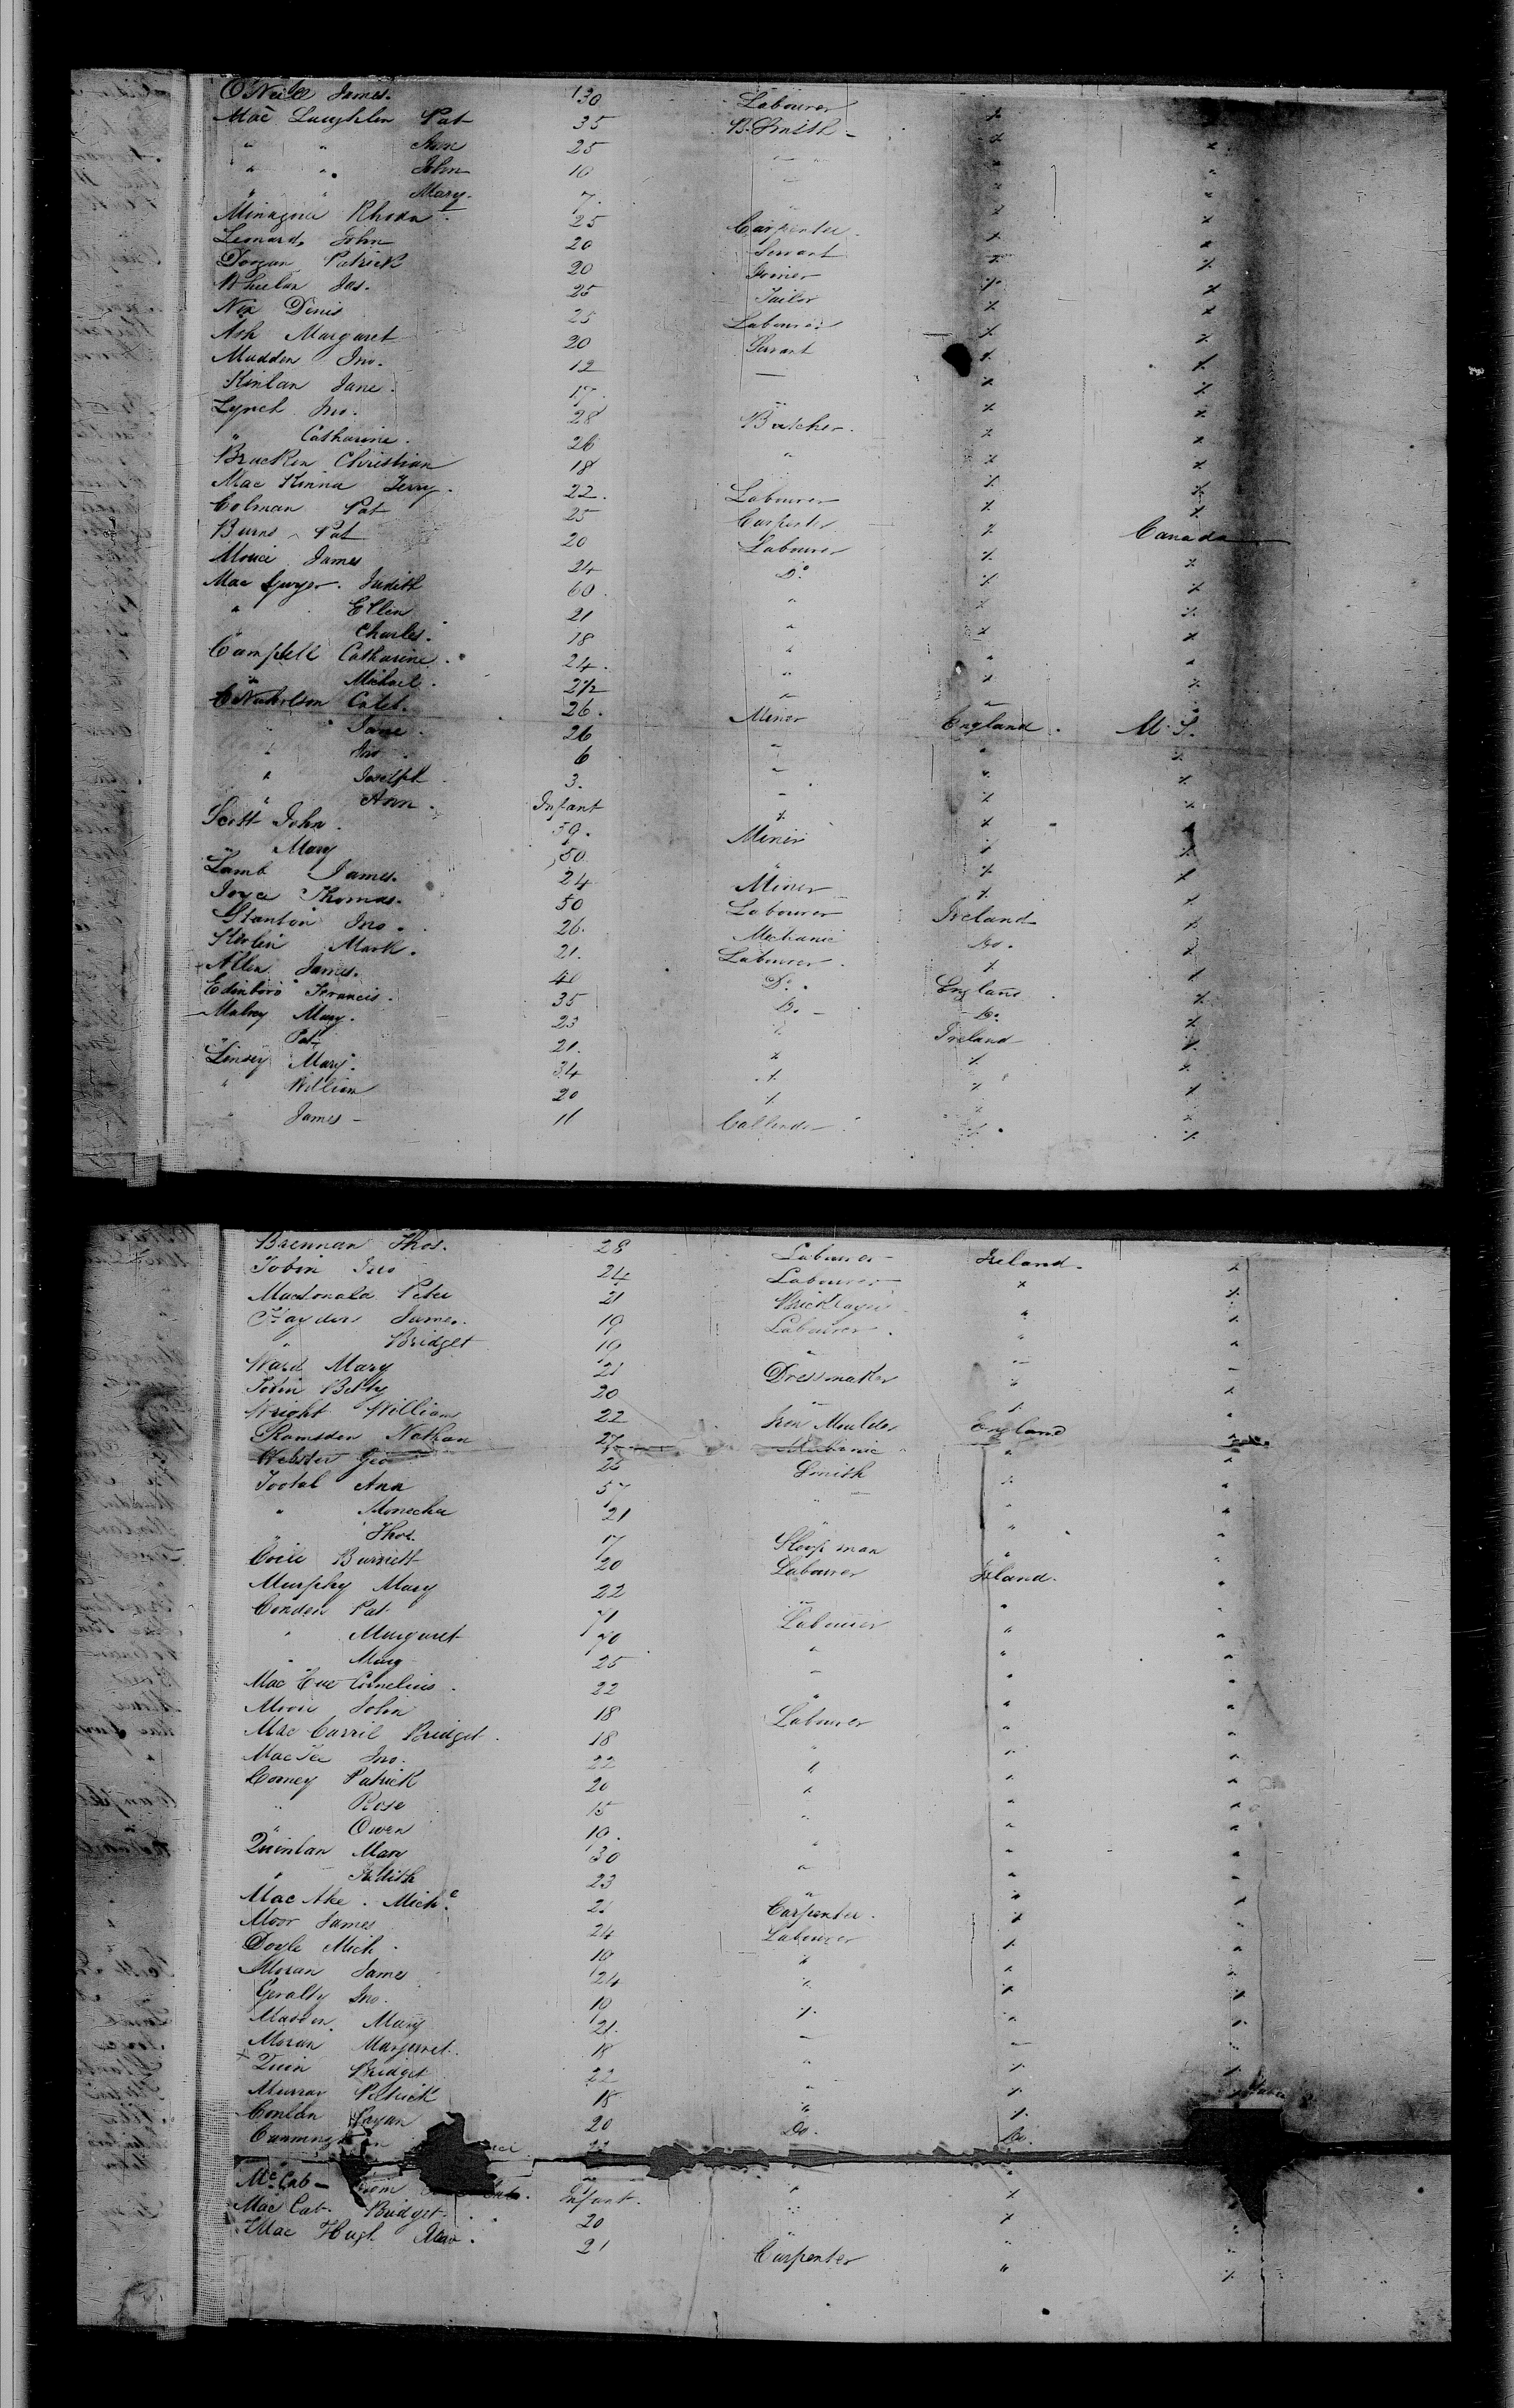 O'Neill James. 30 Labourer "
Mac Laughlen Pat 35 B. Smith - " "
" " Ann 25 " " "
" " John 10 " "
" " Mary. 7. " " "
Rhoda 25 Carpenter. " "
Leonard, John 20 Servant " "
Dorgan Patrick 20 Joiner " "
Whelan Jas. 25 Tailor " "
Nix Denis 25 Labourer " "
Ash Margaret 20 Servant " "
Madden Jno. 12 — " "
Kinlan Jane. 17. " " "
Lynch Jno. 28 Butcher. " "
" Catharine. 26 " " "
Bracken Christian 18 " "
Mac Kinna Terry. 22. Labourer " "
Colman Pat 25 Carpenter " Canada
Burns Pat 20 Labourer " "
James 24 Do. " "
Mac Judith 60. " " "
" Ellen 21 " " "
" Charles. 18 " " "
Campbell Catharine. 24. " " "
" Michael. 2½ " " "
Nicholson Caleb. 26. Miner England. U. S.
" Jane. 26 " " "
" Jno. 6 " " "
" Joseph. 3. - " "
" Ann. Infant " " "
Scott John. 59. Miner " "
" Mary 50. " " "
Lamb James. 24 Miner " "
Joyce Thomas. 50 Labourer Ireland "
Stanton Jno. 26. Mechanic Do. "
Mark. 21. Labourer. " "
Allen James. 41 Do. England "
Edinboro' Francis. 35 Do. - Do. "
Mary. 23 " Ireland "
" Pat 21. " " "
Linsey Mary. 34 " " "
" William 20 " " "
James - 11 "
Brennan Thos. 28 Labourer Ireland. "
Tobin Jno 24 Labourer " "
Macdonald Peter 21 Bricklayer " "
James. 19 Labourer. " "
" Bridget 19 " " "
Ward Mary 21 Dressmaker " "
Tobin Betty 20 " " "
Wright William 22 Iron Moulder England "
Ramsden Nathan 27 Mechanic " "
Webster Geo 26 Smith " "
Tootal Ann 57 " " "
" 21 " " "
" Thos. 17 Shopman " "
Burnett 20 Labourer Ireland. "
Murphy Mary 22 " " "
Condon Pat 71 Labourer " "
" Margaret 70 " " "
" Mary 25 " " "
Mac Cornelius. 22 " " "
John 18 Labourer " "
Mac Carril Bridget. 18 " " "
Mac Jno. 22 " " "
Comey Patrick 20 " " "
" Rose 15 " " "
" Owen 10. " " "
Quinlan 30 " " "
" Judith 23 " " "
Mac Mich. Carpenter. " "
Moor James 24 Labourer " "
Doyle Mich. 19 " " "
Moran James 24 " " "
Geralty Jno. 19 " " "
Madden. Mary 21. - - "
Moran Margaret. 18 " " "
Quin Bridget 22 " "
Murray Patrick 18 " "
Conlan Bryan 20 Do. Do.
Mc Cab Infant. " "
Mac Cab. Bridget. 20 " " "
Mac Hugh 21 Carpenter " "